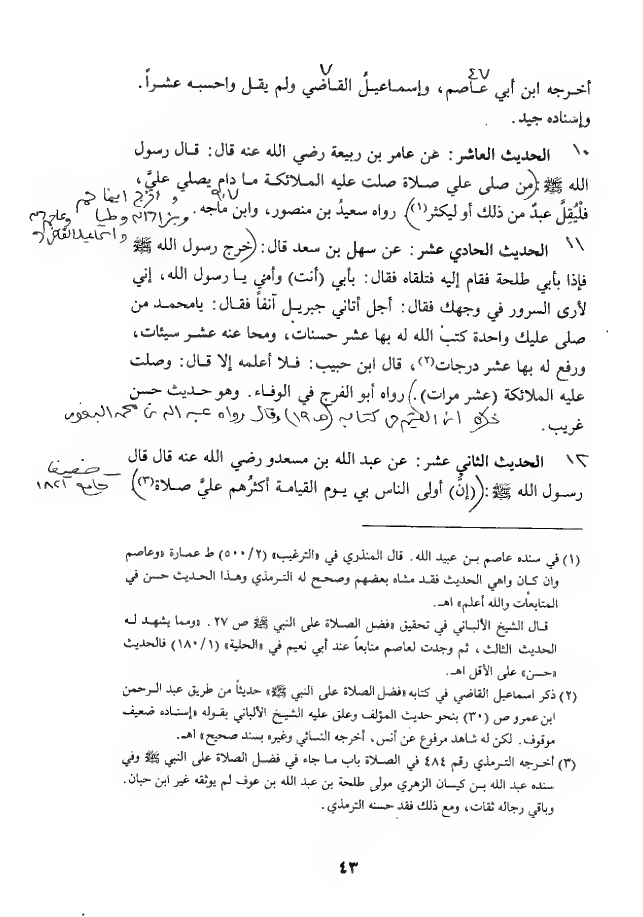 ٧ ٤٧
أخرجه ابن أبي عاصم، وإسماعيلُ القاضي ولم يقل واحسبه عشراً.
وإسناده جيد.
١٠ الحديث العاشر: عن عامر بن ربيعة رضي الله عنه قال: قال رسول
الله ﷺ: (من صلى علي صلاة صلت عليه الملائكة ما دام يصلي عليَّ،
فلْيُقِلَّ عبدٌ من ذلك أو ليكثر(١)) رواه سعيدُ بن منصور، وابن ماجه. ٩٠٧
١١ الحديث الحادي عشر: عن سهل بن سعد قال: (خرج رسول الله ﷺ
فإذا بأبي طلحة فقام إليه فتلقاه فقال: بأبي (أنت) وأمي يا رسول الله، إني
لأرى السرور في وجهك فقال: أجل أتاني جبريل آنفاً فقال: يامحمد من
صلى عليك واحدة كتبْ الله له بها عشر حسنات، ومحا عنه عشر سيئات،
ورفع له بها عشر درجات(٢)، قال ابن حبيب: فلا أعلمه إلا قال: وصلت
عليه الملائكة (عشر مرات).) رواه أبو الفرج في الوفاء. وهو حديث حسن
غريب.
١٢ الحديث الثاني عشر: عن عبد الله بن مسعدو رضي الله عنه قال قال
رسول الله ﷺ: (إنَّ) أولى الناس بي يوم القيامة أكثرُهم عليَّ صلاة(٣))
ضعيف
١٨٢١
(١) في سنده عاصم بن عبيد الله. قال المنذري في «الترغيب» (٥٠٠/٢) ط عمارة «وعاصم
وإن كان واهي الحديث فقد مشاه بعضهم وصحح له الترمذي وهذا الحديث حسن في
المتابعات والله أعلم» اهـ.
قال الشيخ الألباني في تحقيق «فضل الصلاة على النبي ﷺ ص ٢٧. «ومما يشهد له
الحديث الثالث، ثم وجدت لعاصم متابعاً عند أبي نعيم في «الحلية» (١٨٠/١) فالحديث
«حسن» على الأقل اهـ.
(٢) ذكر اسماعيل القاضي في كتابه «فضل الصلاة على النبي ﷺ» حديثاً من طريق عبد الرحمن
ابن عمرو ص (٣٠) بنحو حديث المؤلف وعلق عليه الشيخ الألباني بقوله «إسناده ضعيف
موقوف. لكن له شاهد مرفوع عن أنس، أخرجه النسائي وغيره بسند صحيح» اهـ.
(٣) أخرجه الترمذي رقم ٤٨٤ في الصلاة باب ما جاء في فضل الصلاة على النبي ﷺ وفي
سنده عبد الله بن كيسان الزهري مولى طلحة بن عبد الله بن عوف لم يوثقه غير ابن حبان.
وباقي رجاله ثقات، ومع ذلك فقد حسنه الترمذي.
٤٣